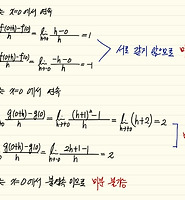 는 x=0 에서 연속
f(0+h)-f(0) / h = lim h→+0 h-0 / h = 1
서로 같지 않으므로
f(0+h)-f(0) / h = lim h→-0 -h-0 / h = -1
는 x=0 에서 연속
g(0+h)-g(0) / h = lim h→+0 (h+1)²-1 / h = lim h→+0 (h+2) = 2
g(0+h)-g(0) / h = lim h→-0 2h+1-1 / h = 2
는 x=0 에서 불연속 이므로 미분 불가능